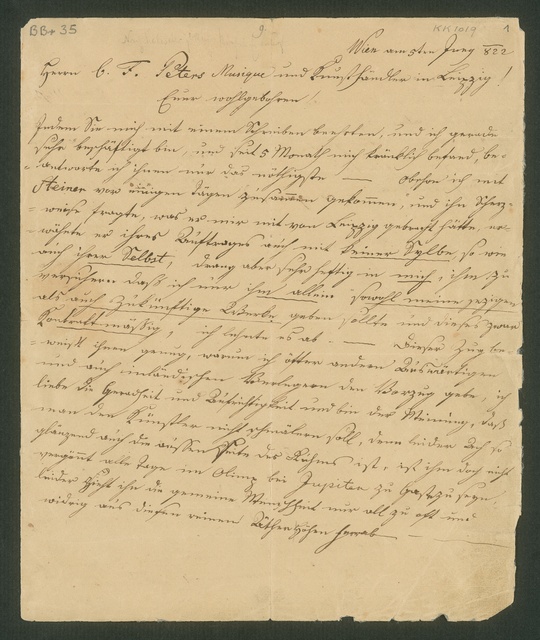 BBr 35
9.
KK 1019
1
Wien am 5ten Juny 822
Herrn C. F. Peters Musique und Kunsthändler in Leipzig!
Euer wohlgebohren!
Indem Sie mich mit einem Schreiben beehrten, und ich gerade
sehr beschäftigt bin, und seit 5 Monath mich kränklich befand, be-
antworte ich ihnen nur das nöthigste — obschon ich mit
Steiner vor einigen Tägen zusammen gekommen, und ihn Scherz-
weise fragte, was er mir mit von Leipzig gebracht hätte, er-
wähnte er ihres Auftrages auch mit keiner Sylbe, so wie
auch ihrer Selbst, drang aber sehr heftig in mich, ihm zu
versichern daß ich nur ihm allein sowohl meine jezigen
als auch Zukünftige Werke geben sollte und dieses zwar
Kontraktmäßig, ich lehnte es ab. — Dieser Zug be-
weißt ihnen genug, warum ich öfter andern Auswärtigen
und auch inländischen Verlegern den Vorzug gebe, ich
liebe die Geradheit und Aufrichtigkeit und bin der Meinung, daß
man den Künstler nicht schmälern soll, denn leider ach so
glänzend auch die äussere Seite des Ruhms ist, ist ihm doch nicht
vergönnt alle Tage im Olimp bei Jupiter zu Gaste zu seyn,
leider zieht ihn die gemeine Menschheit nur all zu oft und
widrig aus diesen reinen Äther Höhen herab —